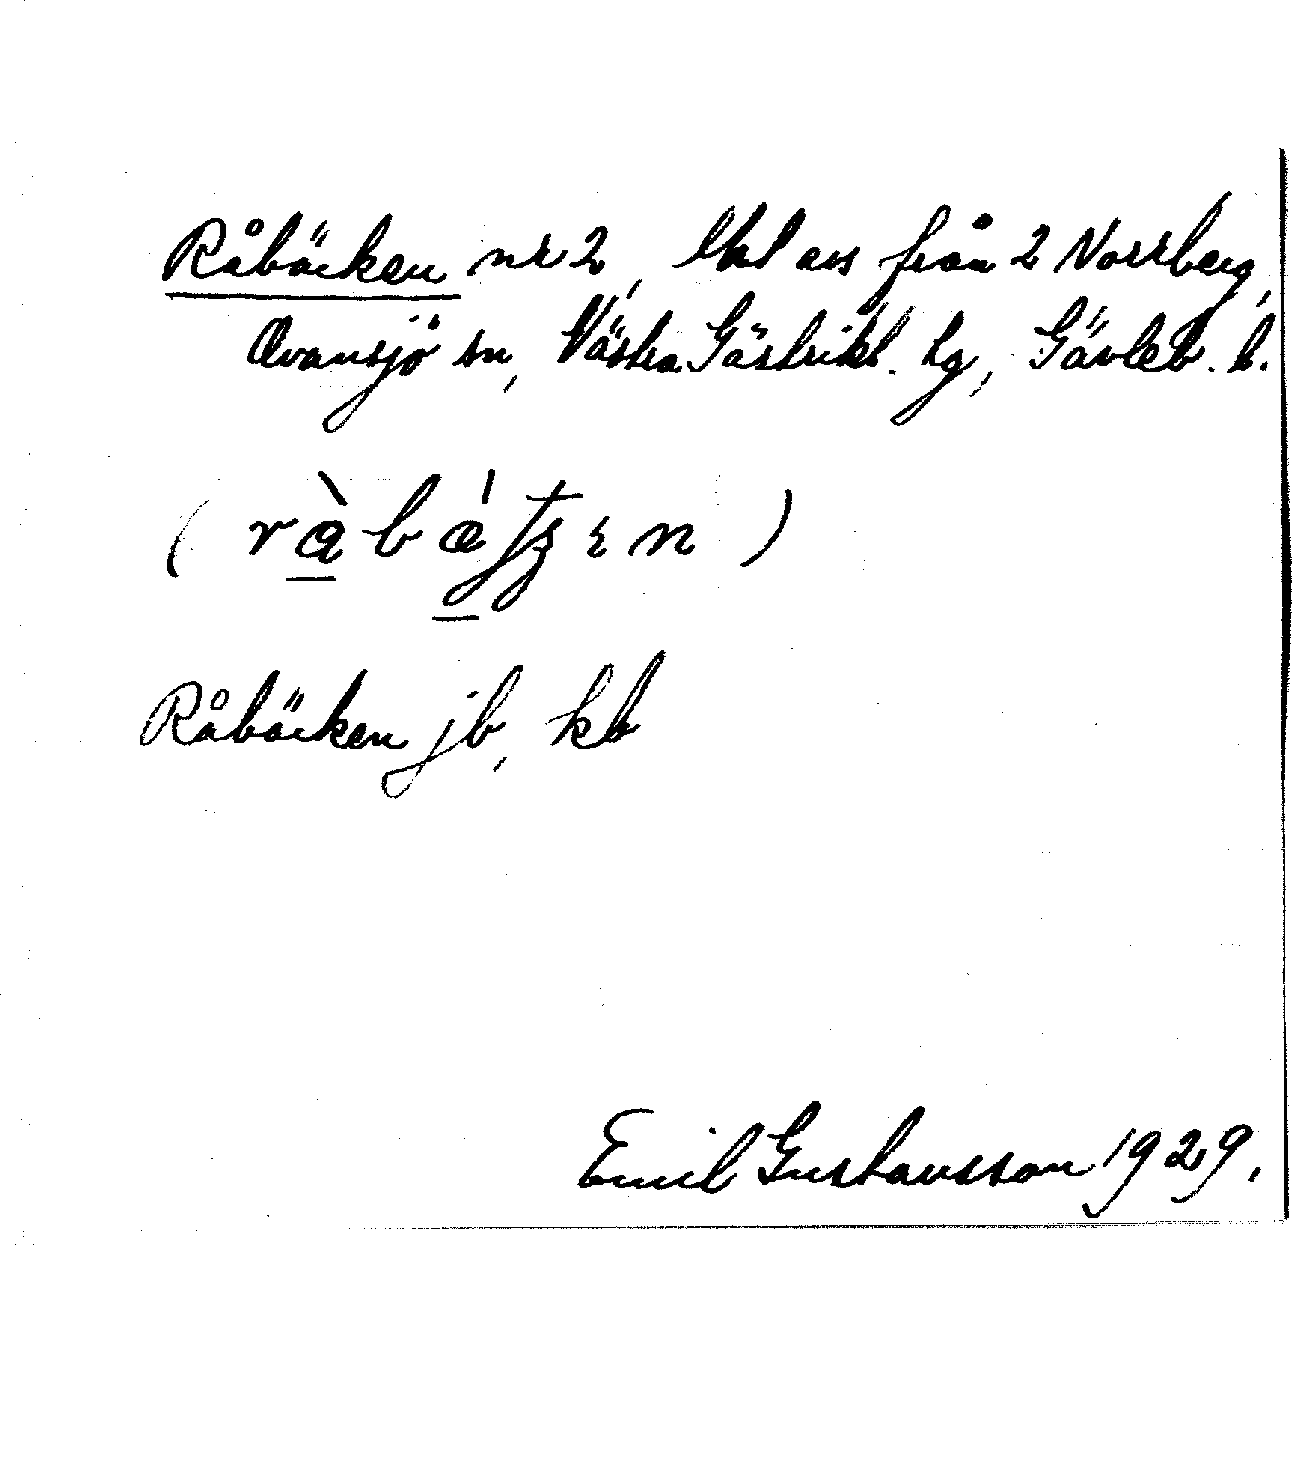 Råbäcken nr 2, avs från 2 Norrberg,
Ovansjö sn, Västra Gästrikl. tg, Gävleb. l.
Råbäcken jb, kb
Emil Gustavsson 1929.